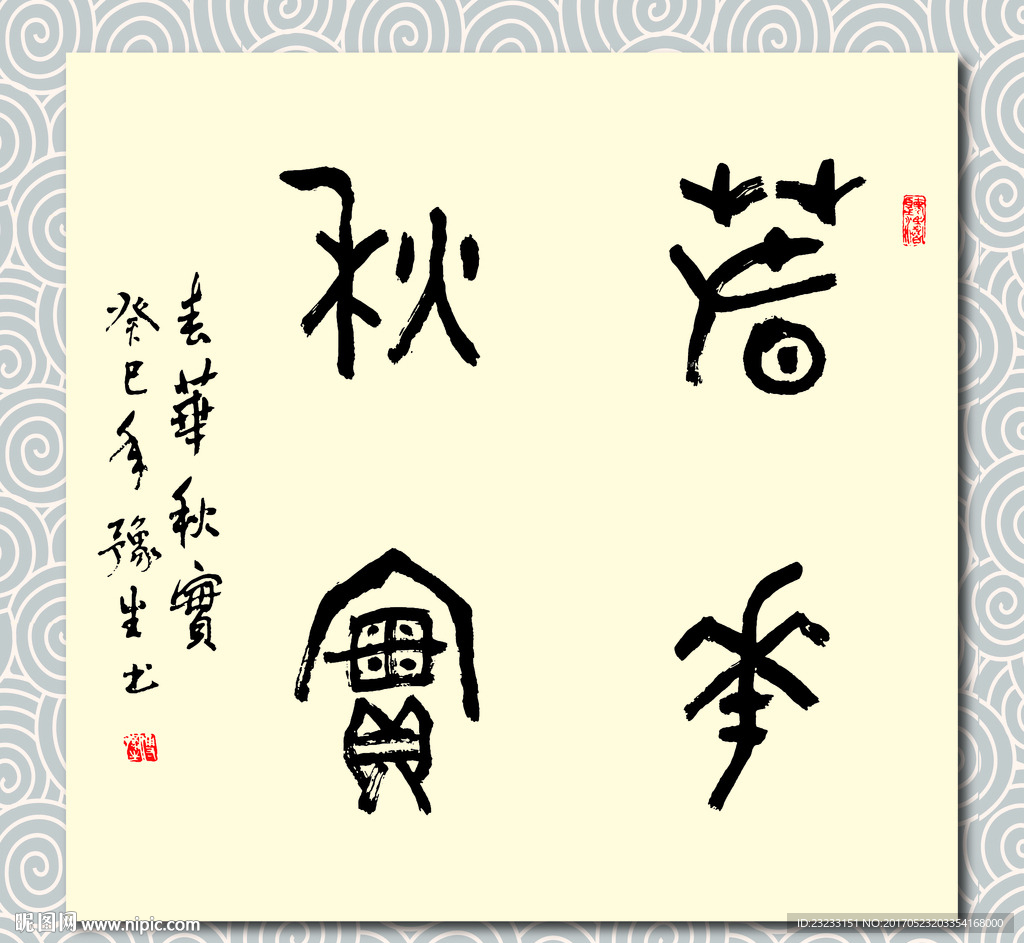 春華
秋實
春華秋實
癸巳年豫生书
昵图网 www.nipic.com
ID:23233151 NO:20170523203354168000